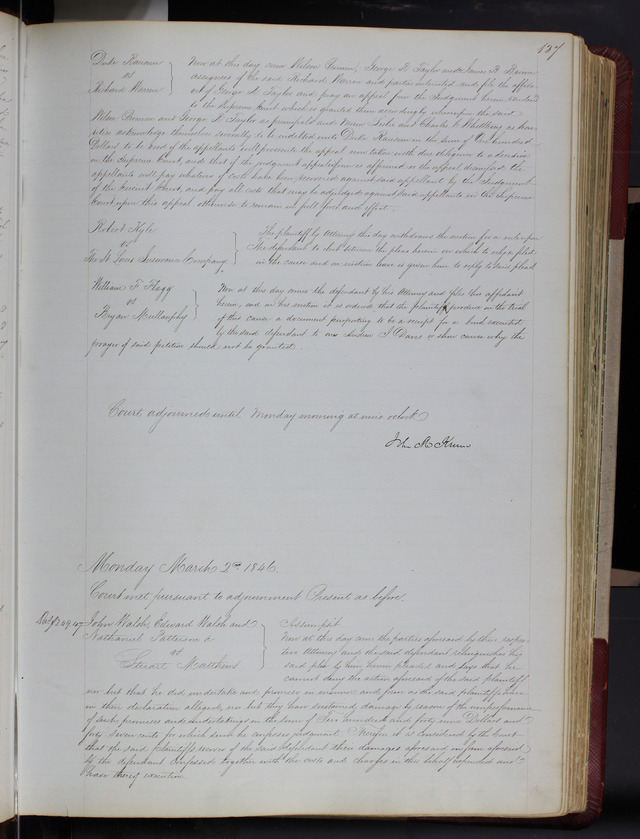 127
Duke Ransom
vs
Richard Warren
Now at this day come Wilson Primm, George R Taylor and James B
assignees of the said Richard Warren and parties interested and file the affida-
vit of George R Taylor and pray an appeal from the Judgment herein rendered
to the Supreme Court which is granted them accordingly whereupon the said
Wilson Primm and George R Taylor as principals and Leslie and Charles as secu-
rities acknowledge themselves severally to be indebted unto Duke Ransom in the sum of One hundred
Dollars to be void if the appellants will prosecute the appeal with due diligence to a decision
in the Supreme Court, and that if the judgment appealed from is affirmed or the appeal dismissed the
appellants will pay whatever of costs have been recovered against said appellants by the Judgment
of the Circuit Court, and pay all costs that may be adjudged against said appellants in the Supreme
Court upon this appeal otherwise to remain in full force and effect.
Robert Kyle
vs
The St Louis Insurance Company
The plaintiff by Attorney this day withdraws the motion for a rule upon
the defendant to elect between the pleas herein on which to rely
in the cause and on motion leave is given him to reply to said pleas
William F Flagg
vs
Bryan Mullanphy
Now at this day comes the defendant by his Attorney and files his affidavit
herein, and on his motion it is ordered that the plaintiff produce on the trial
of this cause a document purporting to be a receipt for a bond executed
by the said defendant to one Andrew J Davis or show cause why the
prayer of said petition should not be granted.
Court adjourned until Monday morning at nine oclock
John M Krum
Monday March 2nd 1846.
Court met pursuant to adjournment Present as before.
John Walsh, Edward Walsh and
Nathaniel Patterson
vs
Stewart Matthews
Assumpsit
Now at this day come the parties aforesaid by their respec-
tive Attorneys and the said defendant relinquishes his
said plea by him herein pleaded and says that he
cannot deny the action aforesaid of the said plaintiffs
nor but that he did undertake and promise in manner and form as the said plaintiffs have
in their declaration alleged, nor but they have sustained damage by reason of the nonperformance
of such promises and undertakings in the sum of Two hundred and forty nine Dollars and
forty seven cents for which sum he confesses judgment. Therefore it is considered by the Court
that the said plaintiffs recover of the said defendant their damages aforesaid in form aforesaid
by the defendant confessed together with the costs and charges in this behalf expended and
have thereof execution.